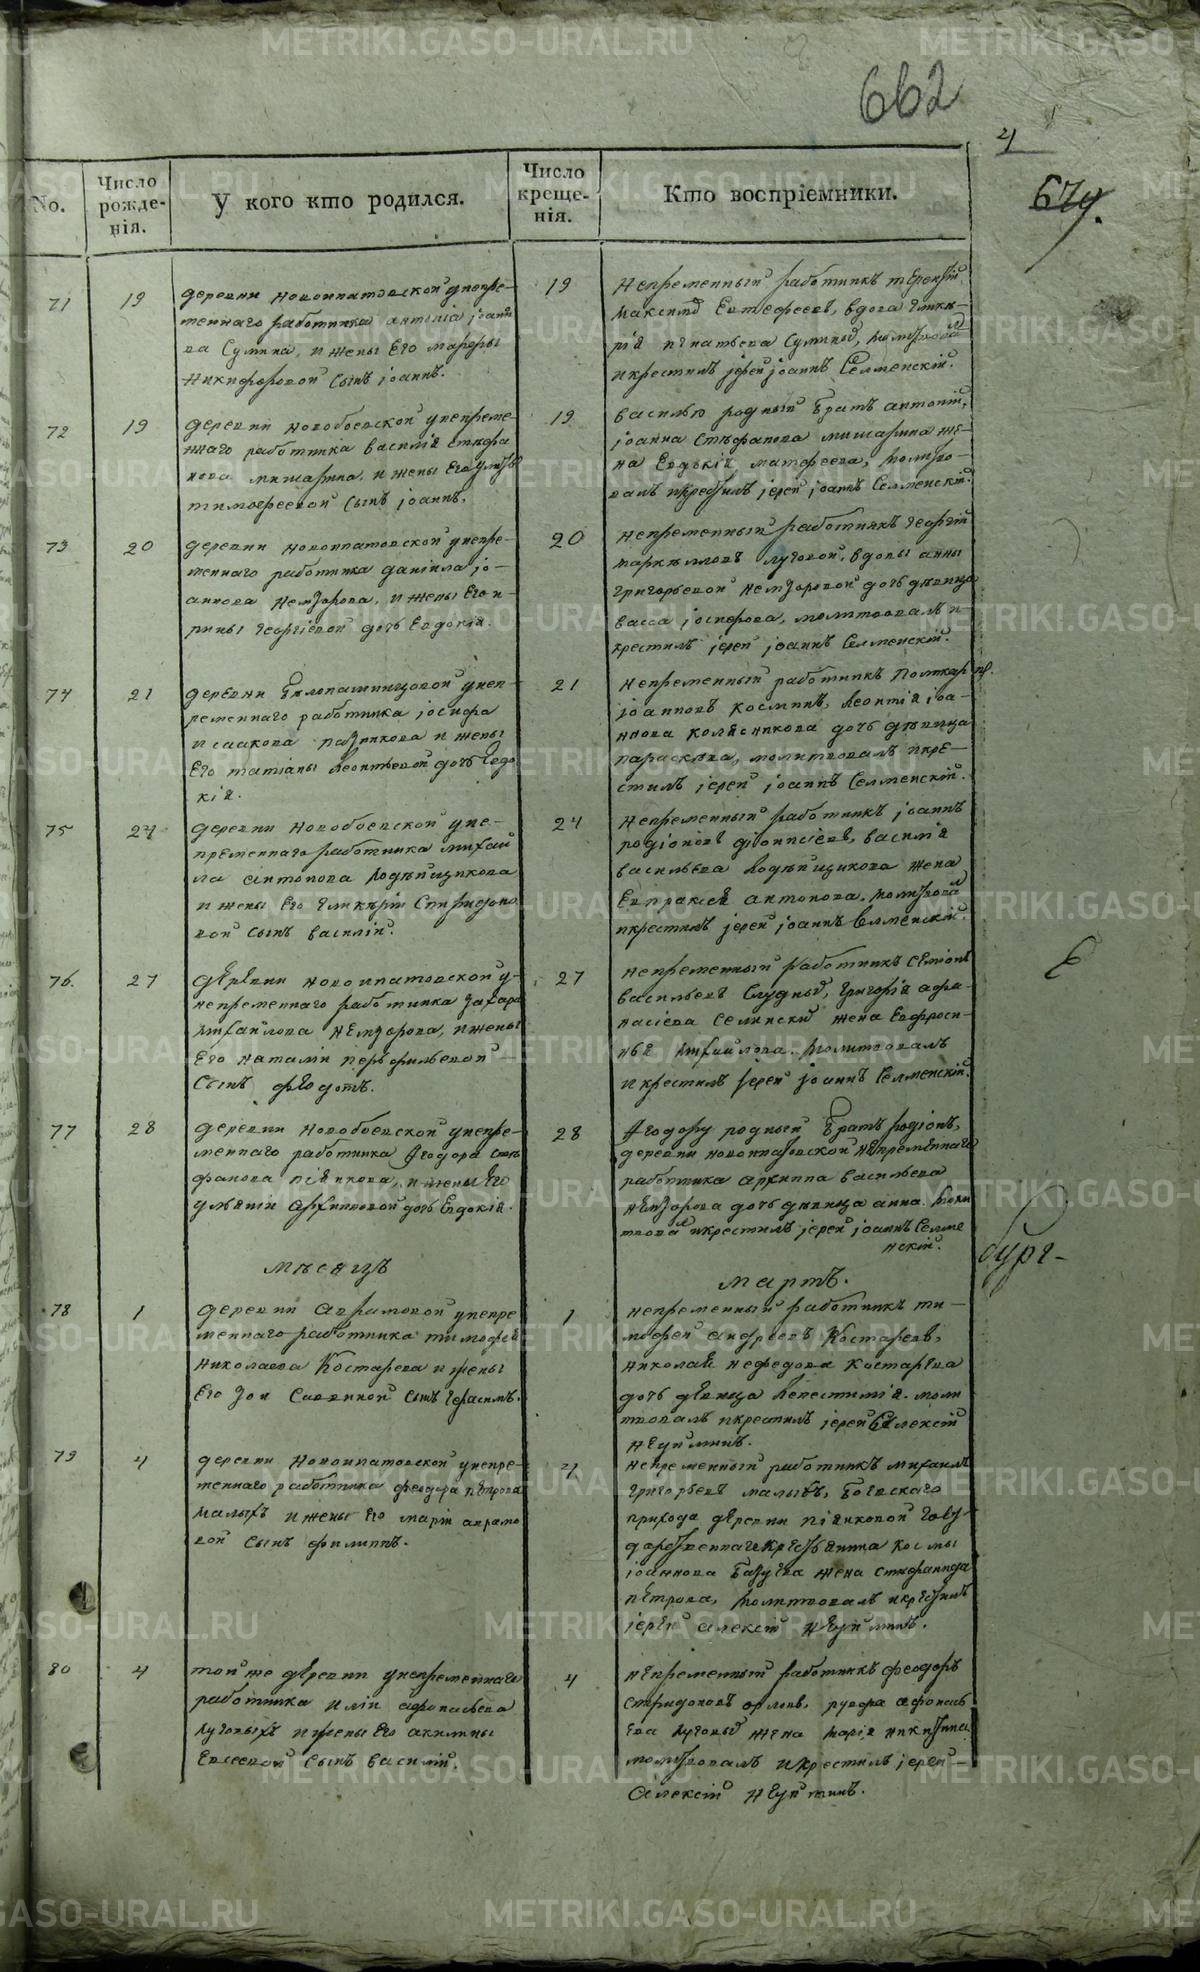 662
4
679.
No.
Число рожденія.
У кого кто родился.
Число крещенія.
Кто воспріемники.
71
19
деревни Новоипатовской унепре-
меннаго работника антонія іоанн
ва Сулина, и жены Его марѳы
Никифоровой Сынъ іоаннъ.
19
Непременный работникъ терентій
Евтефеевъ, вдова Глике-
рія игнатьева
и крестилъ іерей іоаннъ Селменскій.
72
19
деревни новобоевской унепреме-
ннаго работника василія стефа
нова мишарина, и жены Его
тимофеевой Сынъ іоаннъ.
19
василью родный братъ антоній,
іоанна Стефанова мишарина же-
на Евдокія матфеева, молитво-
валъ и крестилъ іерей іоаннъ Селменскій.
73
20
деревни новоипатовской унепре-
меннаго работника даніила іо-
аннова Немзорова, и жены Его и-
рины георгіевой дочь Евдокія.
20
непременный работникъ георгій
маркелловъ луговой, вдовы анны
григорьевой немзоровой дочь девица
васса іосифова, молитвовалъ и-
крестилъ іерей іоаннъ Селменскій.
74
21
деревни унеп-
ременнаго работника іосифа
исаакова и жены
Его татіаны леонтьевой дочь Евдо
кія.
21
непременный работникъ
іоанновъ косминъ, леонтія іоа-
ннова колясникова дочь девица
параскева, молитвовалъ и кре-
стилъ іерей іоаннъ Селменскій.
75
24
деревни новобоевской уне-
пременнаго работника михаи
ла антонова
и жены Его гликеріи Спиридоно
вой Сынъ василій.
24
непременный работникъ іоаннъ
родіоновъ діонисіевъ, василія
васильева жена
Евпраксія антонова. молитвовалъ
и крестилъ іерей іоаннъ Селменскій.
76.
27
деревни новоипатовской у-
непременнаго работника захара
михаилова Немзорова, и жены
Его наталіи перфильевой
Сынъ федотъ.
27
непременный работникъ Семіонъ
васильевъ Слудный, григорія афа-
насіева жена Евфроси-
нья михаилова. молитвовалъ
и крестилъ іерей іоаннъ Селменскій.
77
28
деревни новобоевской унепре-
меннаго работника Ѳеодора сте
фанова піянкова, и жены Его
архиповой дочь Евдокія.
28
Ѳеодору родный братъ родіонъ,
деревни новоипатовской непременнаго
работника архиппа васильева
немзорова дочь девица анна. моли
твовалъ и крестилъ іерей іоаннъ Селме
нскій.
мѣсяцъ
мартъ.
78
1
деревни аврамовой унепре
меннаго работника тимофея
николаева Костарева и жены
Его Зои Савинной Сынъ герасимъ.
1
непременный работникъ ти-
мофей андреевъ Костаревъ,
николая нефедова костарева
дочь девица моли
твовалъ и крестилъ іерей алексій
неуйминъ.
79
4
деревни новоипатовской унепре-
меннаго работника феодора петрова
малыхъ и жены его маріи аврамо
вой Сынъ филиппъ.
4
непременный работникъ михаилъ
григорьевъ малыхъ, боевскаго
прихода деревни піянковой госу-
дарственнаго крестьянина космы
іоаннова жена стефанида
петрова, молитвовалъ и крестилъ
іерей алексій неуйминъ.
80
4
той же деревни унепременнаго
работника иліи афонасьева
луговыхъ и жены его акилины
Евсеевой Сынъ василій.
4
непременный работникъ феодоръ
спиридоновъ орловъ, афонась
ева луговыхъ жена марія никитина.
молитвовалъ и крестилъ іерей
алексій неуйминъ.
METRIKI.GASO-URAL.RU